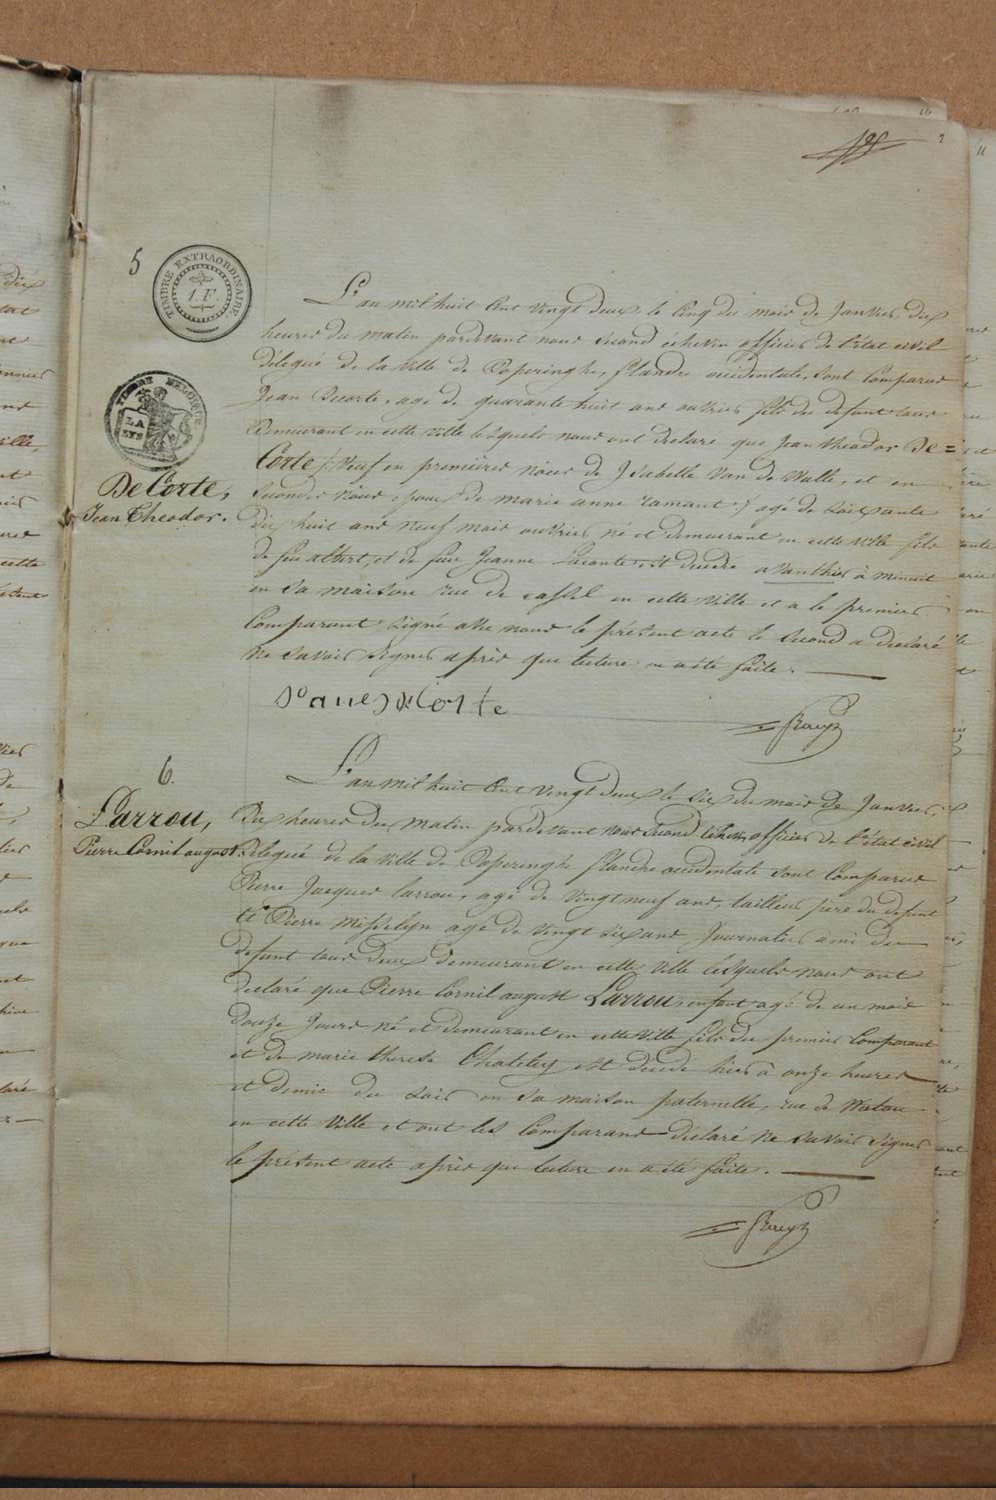 5
TIMBRE EXTRAORDINAIRE
1. F.
L'an mil huit Cent vingt deux, le Cinq du mois de Janvier dix
heures du matin pardevant nous Second échevin officier de l'état civil
délégué de la Ville de Poperinghe, flandre occidentale, sont Comparus
Jean Decorte, age de quarante huit ans ouvrier fils du defunt
Demeurant en cette ville lesquels nous ont déclaré que Jean theodor De=
LA LYS
Corte, Veuf en premières nôces de Isabelle Van de Walle, et en
De Corte,
Secondes nôces epoux de marie anne ramaut, agé de soixante
Jean Theodor.
Dix huit ans neuf mois ouvrier né et demeurant en cette ville fils
de feu albert, et de feue Jeanne est décédé avanthier à minuit
en sa maison rue de cassel en cette Ville et a le premier
Comparant signé avec nous le présent acte le second a déclaré
ne savoir signer après que lecture en a été faite.
De Corte
6
L'an mil huit Cent vingt deux le six du mois de Janvier,
Larrou,
Dix heures du matin pardevant nous Second échevin officier de l'état civil
Pierre Cornil august.
délégué de la Ville de Poperinghe flandre occidentale sont Comparus
Pierre Jacques Larrou, agé de vingt neuf ans, tailleur père du defunt
et Pierre Misselyn agé de vingt six ans Journalier ami du
defunt tous deux demeurant en cette Ville lesquels nous ont
déclaré que Pierre Cornil august Larrou enfant agé de un mois
douze Jours né et demeurant en cette ville fils du premier Comparant
et de marie therese est décédé hier à onze heures
et demie du soir en sa maison paternelle, rue de Watou
en cette Ville et ont les Comparans déclaré ne savoir signer
le présent acte après que lecture en a été faite.